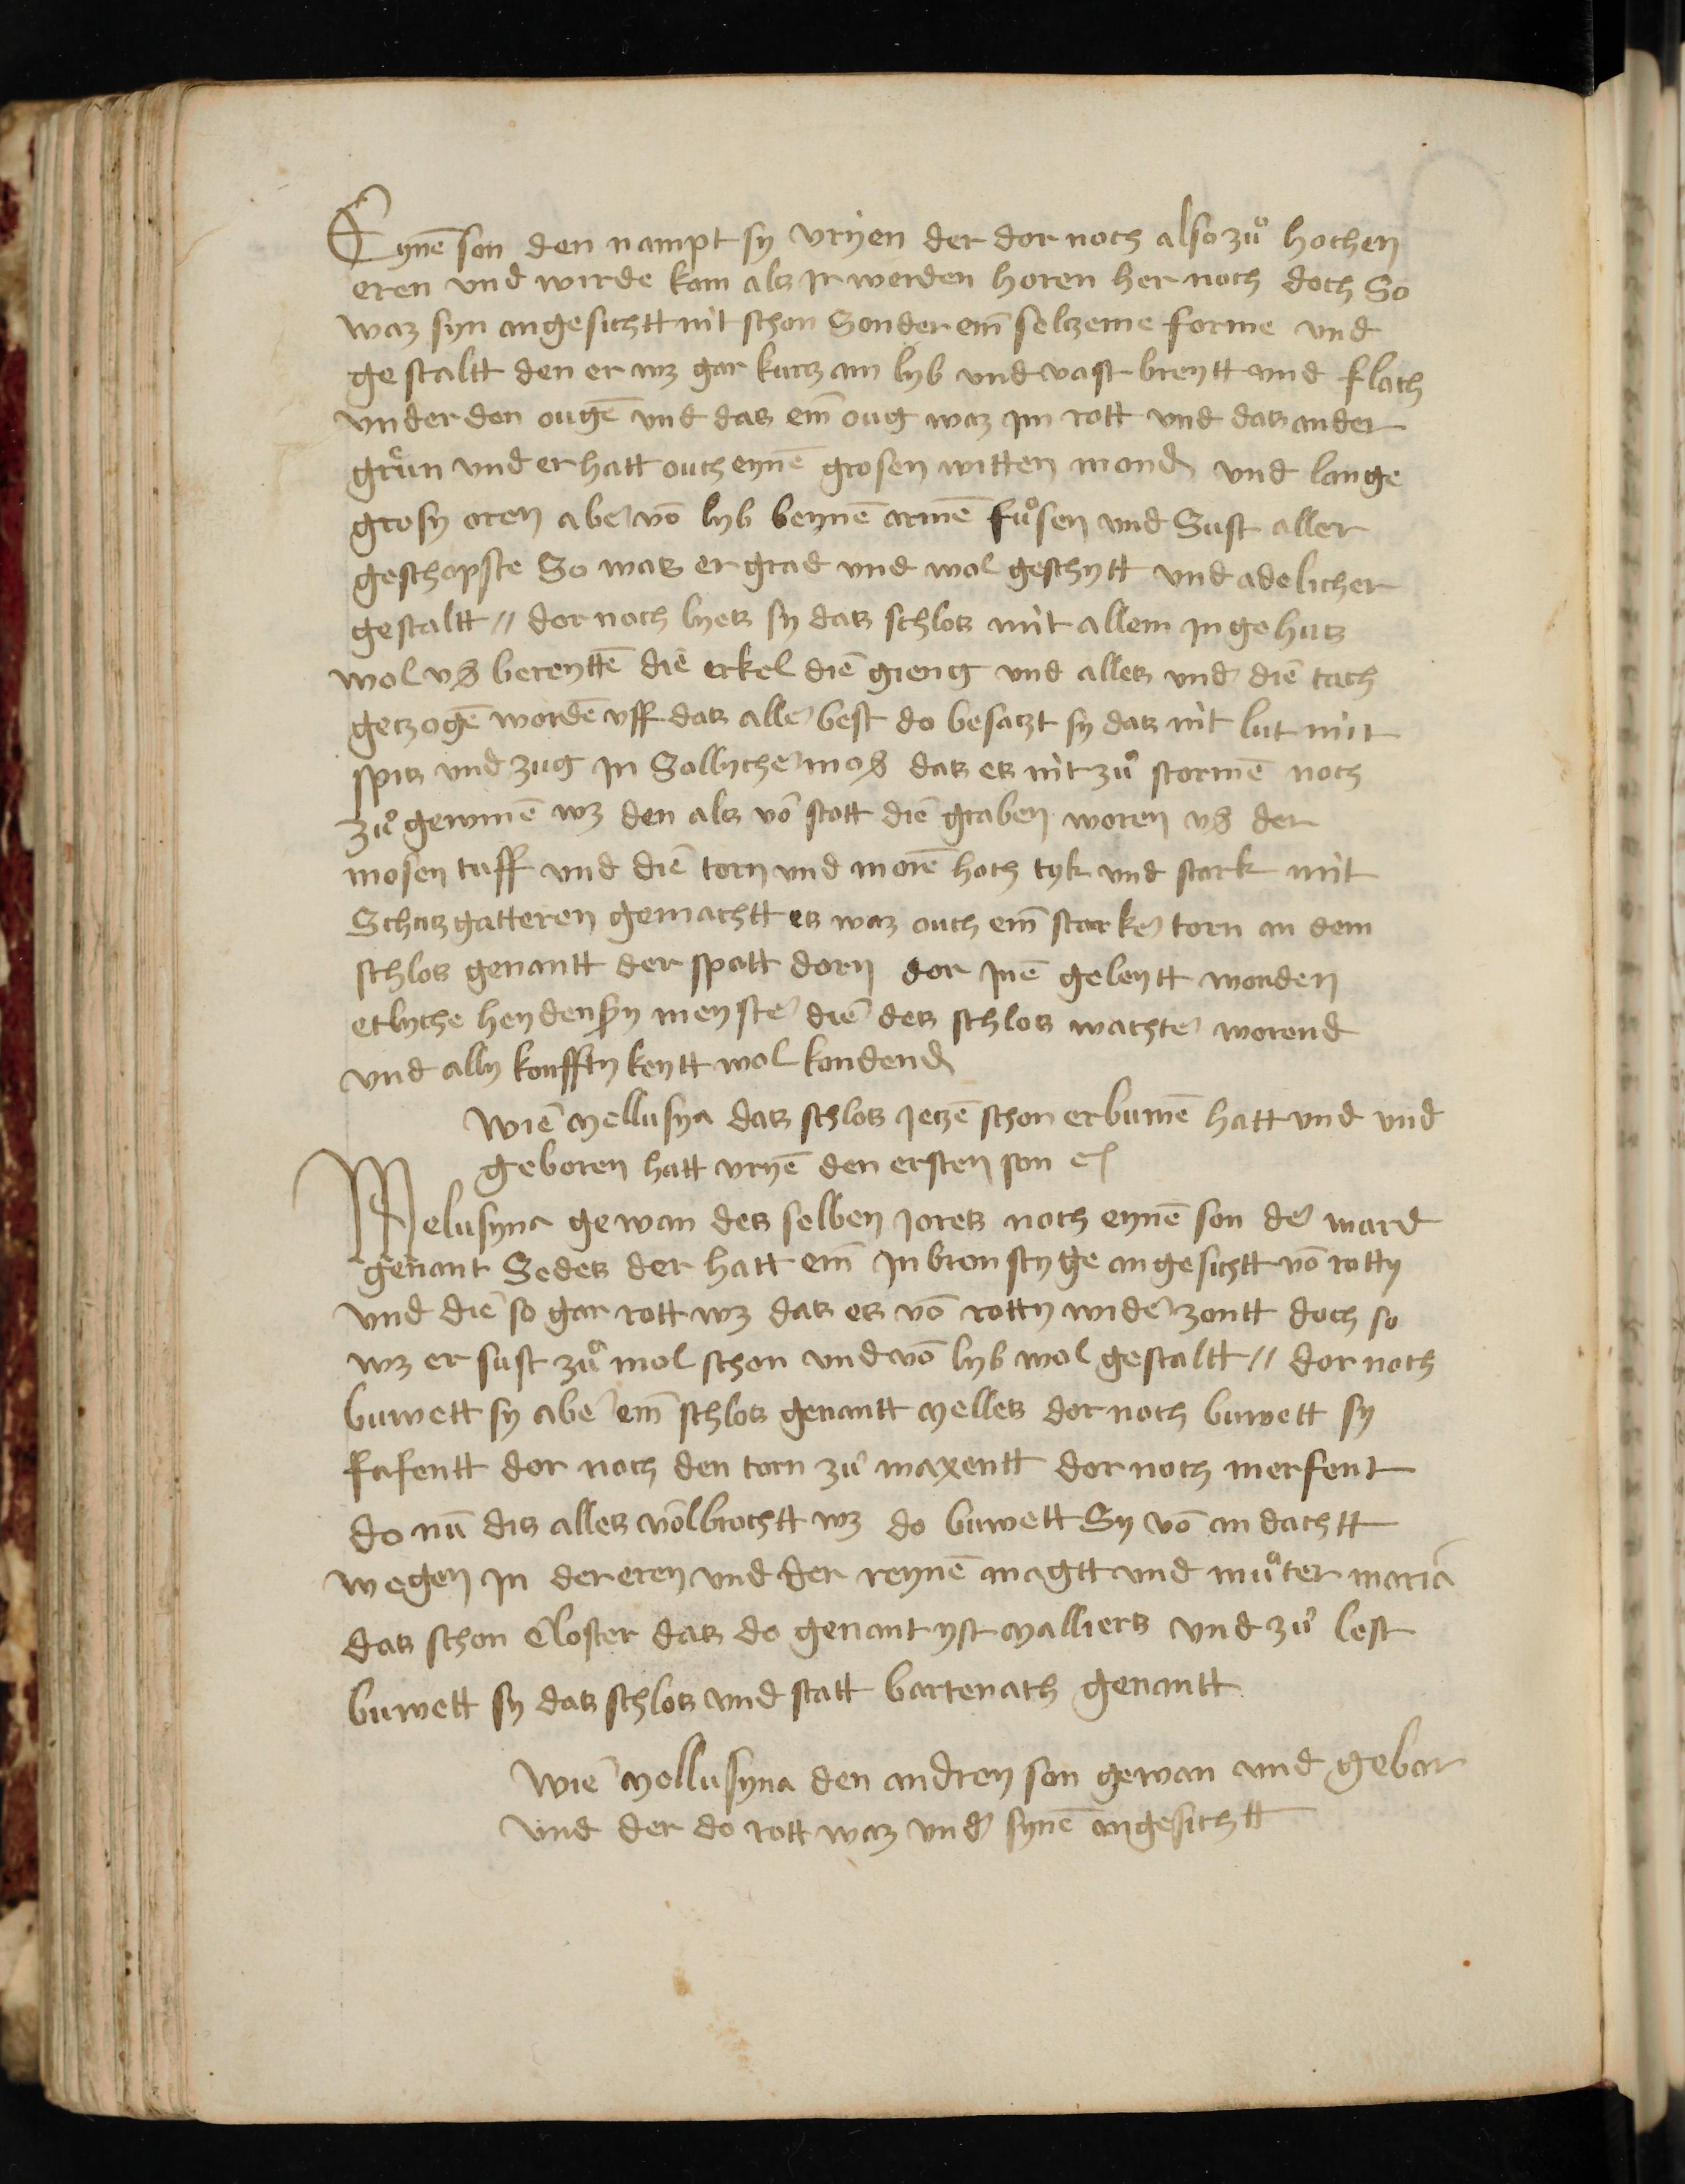 Eynē son den nampt sy vryen der dor noch also zuͦ hochen
eren vnd wirde kam als Ir werden horen her noch doch So
waz syn angesichtt nit schon Sonder ein̄ selczeme forme vnd
gestaltt den er wz gar kurcz am lyb vnd vast breytt vnd flach
vnder den ougē vnd das ein̄ oug waz Im rott vnd das ander
grün vnd er hatt ouch eynē grosen witten mond vnd lange
grosy oren aber vō lyb beynē armē fuͦsen vnd Sust aller
geschopfte So was er grad vnd wol geschytt vnd adelicher
gestaltt // dor noch lyes sy das schlos mit allem In gehus
wol vß bereyttē die erkel die gieng vnd alles vnd die tach
geczogē wordē vff das aller best do besaczt sy das mit lut mit
spis vnd zug In Sollycher moß das es nit zuͦ stormē noch
zuͦ gewinē wz den als vō stott die graben woren vß der
mosen tuff vnd die torn vnd morē hoch tyk vnd stark mit
Schuczgatteren gemachtt es waz ouch ein̄ starker torn an dem
schlos genantt der spott dorn dor Inē geleytt worden
etlyche heydenßy meyster die des schlos wachter worend
vnd ally konfftykeytt wol kondend
Wie Mellusyna das schlos Jeczē schon erbuwē hatt vnd vnd
geboren hatt vryē den ersten son ec
Melusyna gewan des selben Jores noch eynē son der ward
genant Sedes der hatt ein̄ Inbronstyge angesichtt vō rotty
vnd die so gar rott wz das es vō rotty wider zontt doch so
wz er sust zuͦ mol schon vnd vō lyb wol gestaltt // dor noch
buwett sy aber ein̄ schlos genantt Melles dor noch buwett sy
fafentt dor noch den torn zuͦ maxentt dor noch merfent
do nū dis alles volbrochtt wz do buwett Sy vō andachtt
wegen In der eren vnd der reynē magtt vnd muͦter maria
das schon Closter das do genant yst Malliers vnd zuͦ lest
buwett sy das schlos vnd statt bartenach genantt
Wie Mellusyna den andren son gewan vnd gebar
vnd der do rott waz vnder synē angesichtt